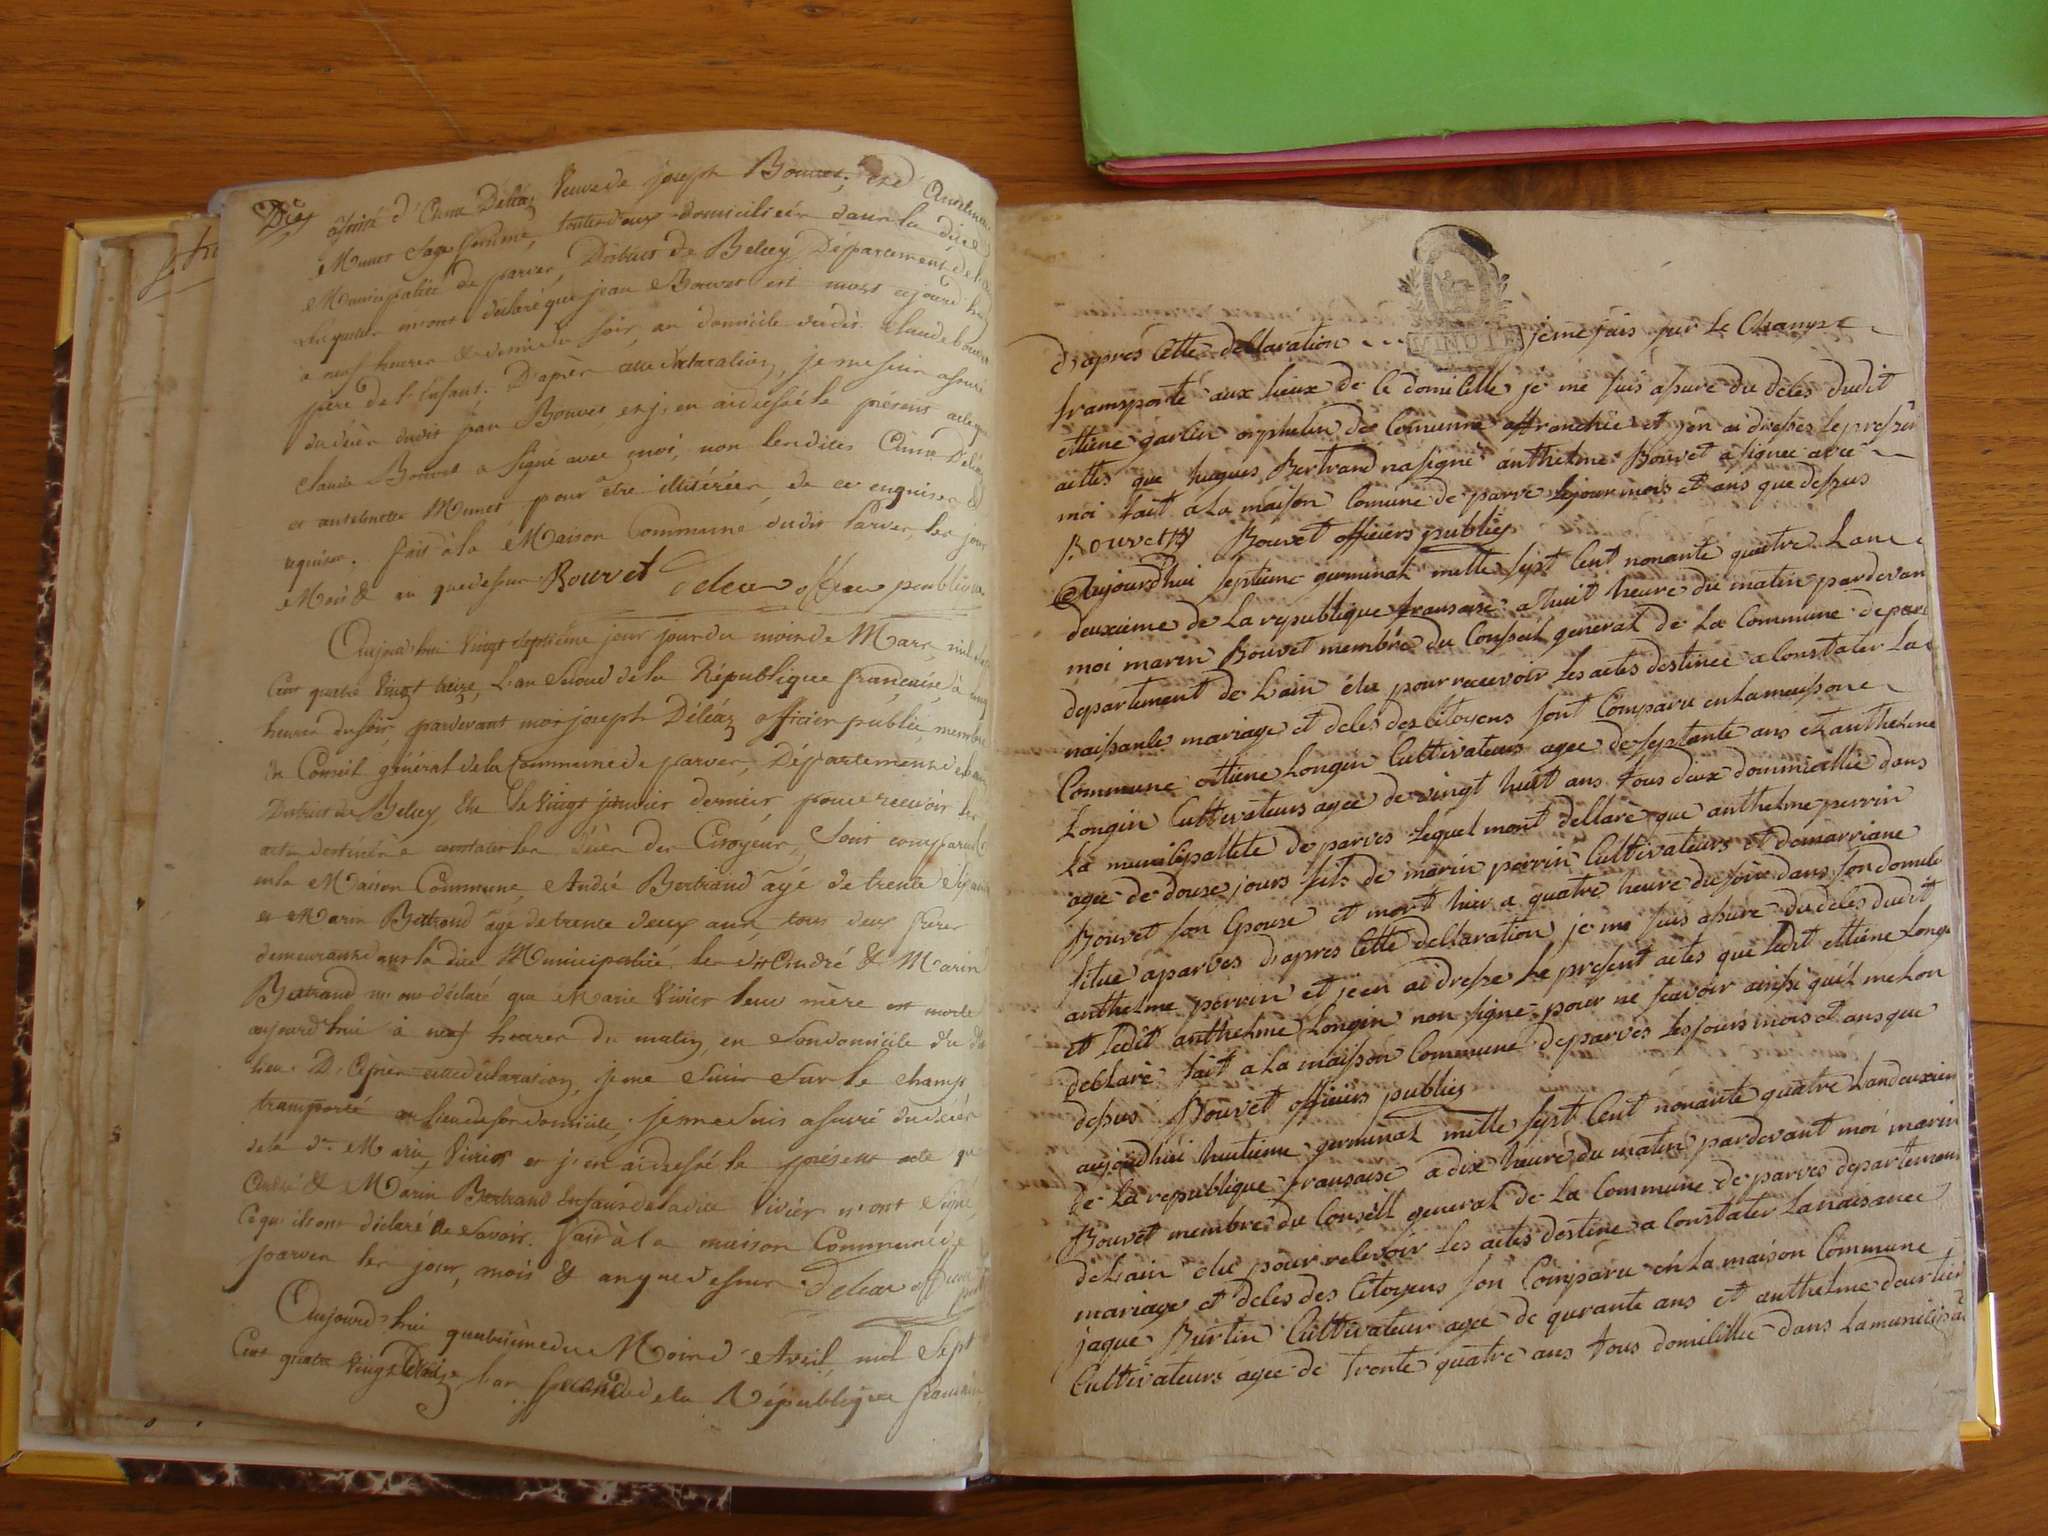 assisté d'Anne Déléaz Veuve de joseph Bouvet, et d'Anselmette
Munet Sage femme, toutes deux domiciliées dans la dite
Municipalité de parves, District de Belley Département de l'ain
Lesquelles m'ont déclaré que jean Bouvet est mort aujourd'hui
à neuf heures & demie du soir, au domicile dudit Claude Bouvet
père de l'Enfant. D'après cette déclaration, je me suis assuré
du décès dudit jean Bouvet, et j'en ai dressé le présent acte que
Claude Bouvet a Signé avec moi, non lesdites Anne Déléaz
et anselmette Munet pour être illitérées, de ce enquises &
requises. fait à la Maison Commune dudit Parves, les jour
Mois & an que dessus Bouvet Deleaz officier publique
Aujourd'hui Vingt septième jour du mois de Mars, mil sept
Cent quatre Vingt treize, L'an Second de la République française, à cinq
heures du soir, pardevant moi joseph Déléaz officier public, membre
du Conseil général de la Commune de parves, Département de l'ain
District de Belley élu le Vingt janvier dernier pour recevoir les
actes destinés à constater les décès des Citoyens, Sont comparus
en la Maison Commune, André Bertrand agé de trente
et Marin Bertrand agé de trente deux ans, tous deux frères
demeurants dans la dite Municipalité, les dits André & Marin
Bertrand m'ont déclaré que Marie Vivier leur mère est morte
aujourd'hui à neuf heures du matin, en Son domicile du dit
lieu. D'Après cette déclaration, je me Suis Sur le champ
transporté au lieu de son domicile, je me suis assuré du décès
de la de Marie Vivier et j'en ai dressé le présent acte que
André & Marin Bertrand Enfans de la dite Vivier n'ont Signé
Ce qu'ils ont déclaré ne Savoir. fait à la maison Commune de
parves les jour, mois & an que dessus Deleaz officier public
Aujourd'hui quatrième du Mois d'Avril, mil Sept
Cent quatre Vingt treize, L'an Second de la République française
D'aprés Cette dellaration jeme suis sur le Champt
transporté aux lieux de le domicille je me suis assuré du déles dudit
ettiene garlin orphelin de Comunne affranchie et j'en ai dresses le present
acttes que hugues Bertrand na signé anthelme Bouvet a signee avec
moi fait a la maison Comune de parve lejour mois et ans que dessus
Bouvet Bouvet officiers publics
Aujourdhui septieme germinal mille sept Cent nonante quattre Lan
deuxieme de La republique fransaise a huit heure du matin pardevant
moi marin Bouvet membre du Conseil general de La Commune de parves
departement de Lain élu pour recevoir Les actes destinee a Constater La
naissante mariage et deles des Citoyens sont Comparu en La maison
Commune ettiene Longin Cultivateurs agee de septante ans et anthelme
Longin Cultivateurs agee de vingt huit ans tous deux dommicillie dans
La municipallite de parves lequel mont dellaré que anthelme perrin
agee de douse jours fils de marin perrin Cultivateurs et de marriane
Bouvet son Epouse et mort hier a quatre heure du soire dans son domicile
situe a parves d'apres Cette dellaration je me suis assure du deles dudit
anthelme perrin et jeen ai dresse Le present actes que Ledit ettiene Longin
et Ledit anthelme Longin non signe pour ne scavoir ainsi quil me Lon
declaré fait a La maison Commune de parves Les jours mois et ans que
depsus Bouvet officiers publics
aujourdhui huitieme germinal mille sept Cent nonante quatre Lan deuxieme
de La republique fransaise a dix heure du matin pardevant moi marin
Bouvet membre du Conseill general de La Commune de parves departement
de Lain elu pour relevoir Les actes destine a Constater La naissance
mariage et deles des Citoyens son Comparu en La maison Commune
jaque Burtin Cultivateur agee de qurante ans et anthelme
Cultivateurs agee de tronte quatre ans tous domicillie dans La